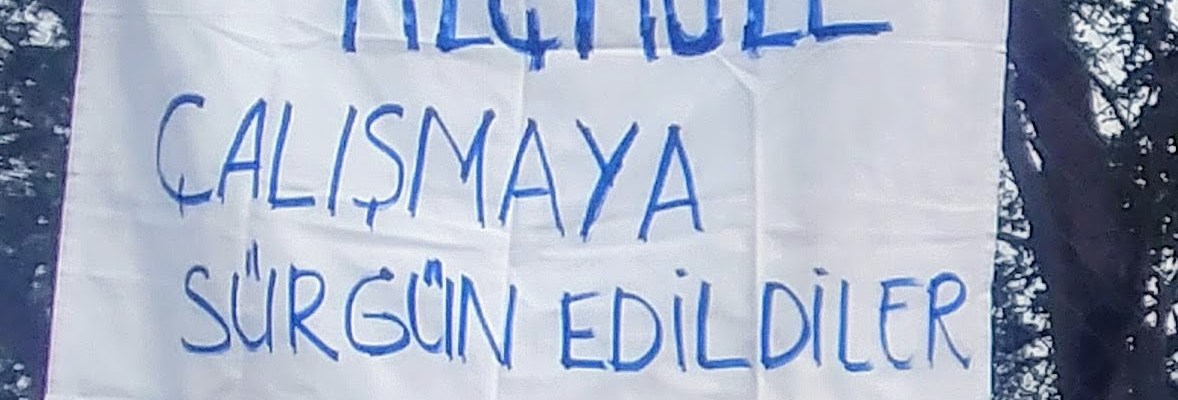 ÇALIŞMAYA
SÜRGÜN EDİLDİLER